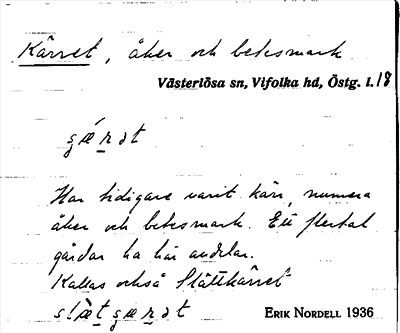 Kärret, åker och betesmark
Västerlösa sn, Vifolka hd, Östg. l. 18
Har tidigare varit kärr, numera
åker och betesmark. Ett flertal
gårdar ha här andelar.
Kallas också Slättkärret
ERIK NORDELL 1936